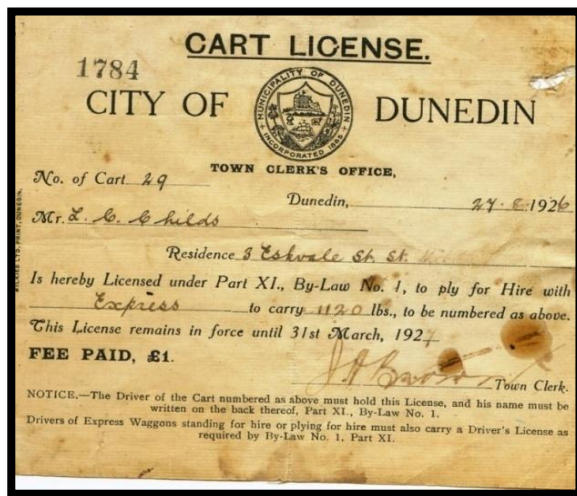 CART LICENSE.
1784
CITY OF DUNEDIN
MUNICIPALITY OF DUNEDIN
INCORPORATED 1865
TOWN CLERK'S OFFICE,
No. of Cart 29
Dunedin, 27 1926
Mr. L. C. Childs
Residence 3 Eskvale St. St.
Is hereby Licensed under Part XI., By-Law No. 1, to ply for Hire with
Express to carry 1120 lbs., to be numbered as above.
This License remains in force until 31st March, 1927
FEE PAID, £1.
Town Clerk.
NOTICE.—The Driver of the Cart numbered as above must hold this License, and his name must be
written on the back thereof, Part XI., By-Law No. 1.
Drivers of Express Waggons standing for hire or plying for hire must also carry a Driver's License as
required by By-Law No. 1, Part XI.
WILKIE LTD. PRINT, DUNEDIN.